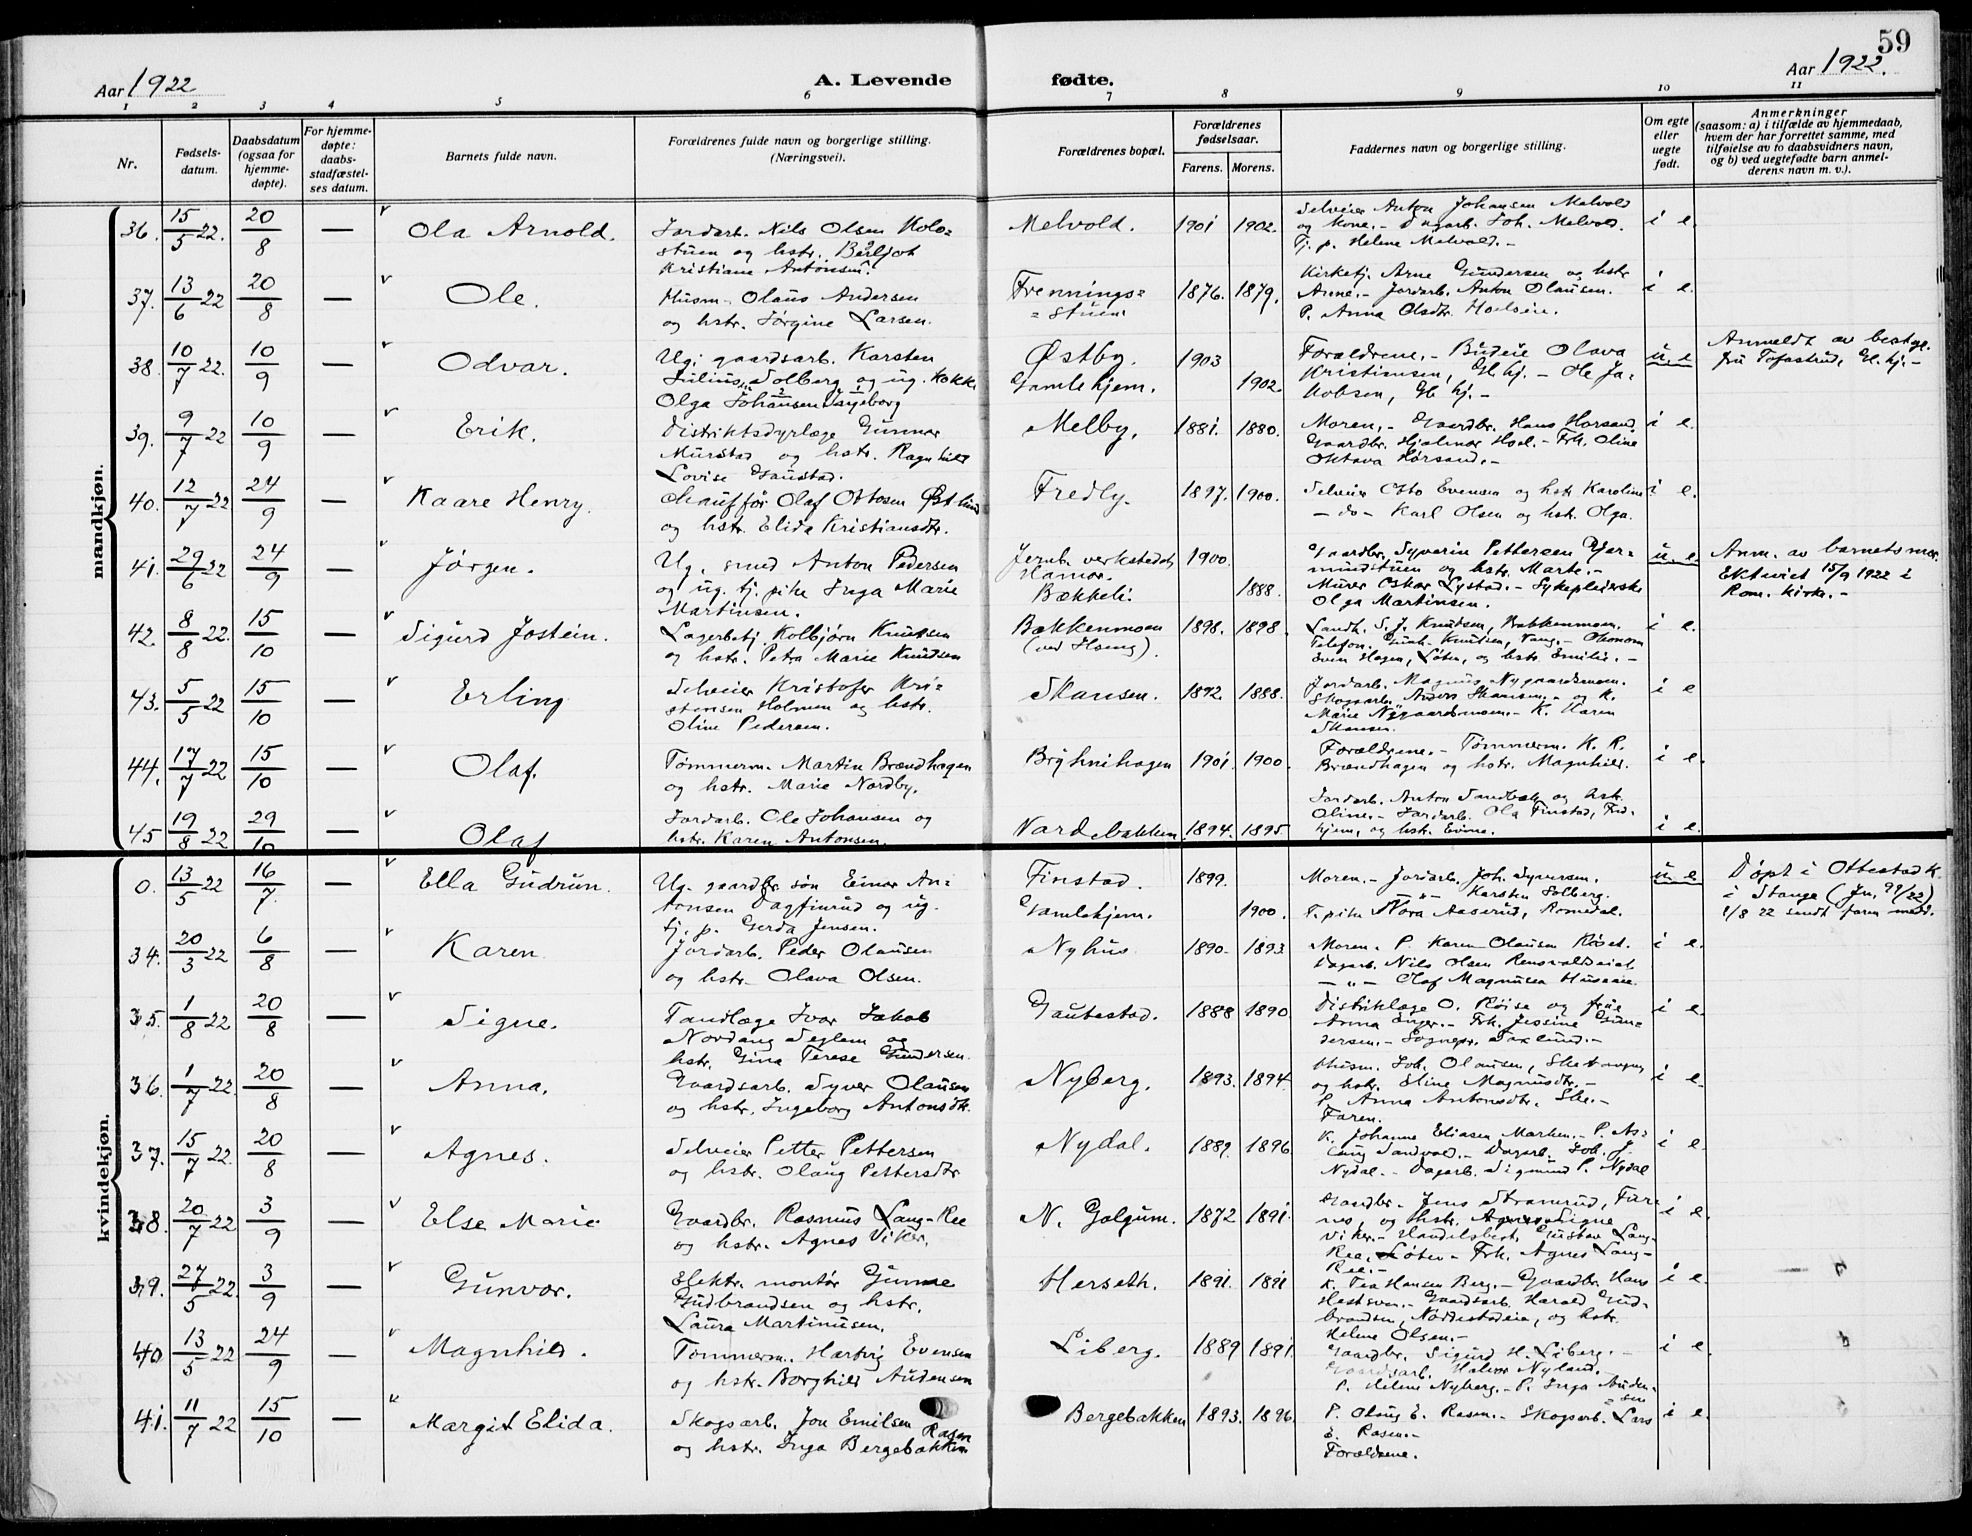 59
Aar 1922
A. Levende fødte.
Aar 1922.
1 2 3 4 5 6 7 8 9 10 11
Nr.
Fødsels-
datum.
Daabsdatum
(ogsaa for
hjemme-
døpte).
For hjemme-
døpte:
daabs-
stadfæstel-
ses datum.
Barnets fulde navn.
Forældrenes fulde navn og borgerlige stilling.
(Næringsvei).
Forældrenes bopæl.
Forældrenes
fødselsaar.
Farens. Morens.
Faddernes navn og borgerlige stilling.
Om egte
eller
uegte
født.
Anmerkninger
(saasom: a) i tilfælde av hjemmedaab,
hvem der har forrettet samme, med
tilføielse av to daabsvidners navn,
og b) ved uegtefødte barn anmel-
derens navn m. v.).
mandkjøn.
36. 15/5 22. 20/8 — Ola Arnold.
Jordarb. Nils Olsen Kolo=
stuen og hstr. Bergljot
Kristiane Antonsen.
Melvold. 1901 1902.
Selveier Anton Johansen Melvold
og kone. - Dagarb. Joh. Melvold.
Tj. p. Helene Melvold. -
i e.
37. 13/6 22 20/8 — Ole.
Husm. Olaus Andersen
og hstr. Jørgine Larsen.
Frennings=
=stuen 1876. 1879.
Kirketj. Arne Gundersen og hstr
Anne. - Jordarb. Anton Olausen.
P. Anna Olsdtr.
i e.
38. 10/7 22. 10/9 — Odvar.
Ug. gaardsarb. Karsten
Julius Solberg og ug. kokke
Olga Johansen Ingeborg
Østby. 1903
Gamlehjem. 1902.
Forældrene. - Budeie Olava
Kristiansen, Gl. hj. - Ole Ja-
kobsen, Gl. hj. -
u. e
Anmeldt av bestyr.
fru Tofastrud, Gl. hj. -
39. 9/7 22 10/9 — Erik.
Distriktsdyrlæge Gunnar
Murstad og hstr. Ragnhild
Lovise Haustad.
Melby. 1881. 1880.
Moren. - Gaardbr. Hans Horsand.
Gaardbr. Hjalmar Hoel. - Frk. Oline
Oktava Horsand. -
i e.
40. 12/7 22 24/9 — Kaare Henry.
Chauffør Olaf Ottosen Østlund
og hstr. Elida Kristiansdtr.
Fredly. 1897. 1900.
Selveier Otto Evensen og hstr Karoline
— do — Karl Olsen og hstr. Olga.
i e.
41. 29/6 22 24/9 — Jørgen.
Ug. smed Anton Pedersen
og ug. tj. pike Inga Marie
Martinsen.
Jernb. verkstedet,
Hamar. 1900.
Bækkeli. 1888.
Gaardbr. Syverin Pettersen Gjer-
mundstuen og hstr. Marte. -
Murer Oskar Lystad. - Sykepleierske
Olga Martinsen.
u. e
Anm. av barnets mor.
Ektviet 15/9 1922 i
Rom. kirke. -
42. 8/8 22. 15/10 — Sigurd Jostein.
Lagerbetj. Kolbjørn Knutsen
og hstr. Petra Marie Knudsen
Bækkenmoen
(ved Hoeng). 1898. 1898
Landh. S. J. Knudsen, Bækkenmoen.
Telefon. Gunh. Knutsen, Vang. - Økonom
Even Hagen, Løten, og hstr. Emilie. -
i e.
43. 5/5 22 15/10 — Erling
Selveier Kristofer Kri-
stensen Holmen og hstr.
Oline Pedersen.
Skansen. 1892. 1888.
Jordarb. Magnus Nygaardsmoen.
Skogsarb. Anders Skansen. - og K.
Marie Nygaardsmoen. - K. Karen
Skansen.
i e
44. 17/7 22 15/10 — Olaf.
Tømmerm. Martin Brændhagen
og hstr. Marie Nordby.
Bryhnihagen 1901. 1900.
Forældrene. - Tømmerm. K. R.
Brændhagen og hstr. Magnhild.
i e.
45 19/8 22 29/10 Olaf
Jordarb. Ole Johansen og
hstr. Karen Antonsen.
Nordbakken 1894. 1895.
Jordarb. Anton Sandbæk og hstr.
Oline. - Jordarb. Ola Finstad, Frd-
hjem, og hstr. Evine.
i e.
kvindekjøn.
0. 13/5 22 16/7. — Ella Gudrun.
Ug. gaardbr. søn Einar An-
tonsen Dagfinrud og ug.
tj. p. Gerda Jensen.
Finstad. 1899.
Gamlehjem. 1900.
Moren. - Jordarb. Joh. Syversen.
— „ — Karsten Solberg.
T. pike Nora Aaserud, Romedal.
u. e
Døpt i Ottestad k.
i Stange (Jn. 99/22)
1/8 22 sendt farm. medd.
34. 20/3 22 6/8 — Karen
Jordarb. Peder Olausen
og hstr. Olava Olsen.
Nyhus. 1890. 1893
Moren. P. Karen Olausen Røset.
Dagarb. Nils Olsen
— „ — Olaf Magnusen
i e.
35. 1/8 22 20/8 — Signe.
Tandlæge Ivar Jakob
Nordang Seglem og
hstr. Gina Terese Gundersen.
Gaustestad. 1888 1890
Distriktlæge O. Røise og frue
Anna Enger. - Frk. Jessine Gun-
dersen. - Sognepr. Daxlund. -
i e.
36. 1/7 22. 20/8 — Anna.
Gaardsarb. Syver Olausen
og hstr. Ingeborg Antonsdtr.
Nyberg. 1893. 1894.
Husm. Joh. Olausen,
og hstr. Eline Magnusdtr. -
P. Anna Antonsdtr.
Faren.
i e.
37. 15/7 22. 20/8 — Agnes.
Selveier Petter Pettersen
og hstr. Olaug Pettersdtr
Nydal. 1889. 1896
K. Johanne Eliasen Marken. - P. As-
laug Sandvold. - Dagarb. Joh. J.
Nydal. - Dagarb. Sigmund P. Nydal
i e.
38. 20/7 22 3/9 — Else Marie
Gaardbr. Rasmus Lang-Ree
og hstr. Agnes Viker.
N. Golgum. 1872 1891.
Gaardbr. Jens Stramrud, Fur-
nes, og hstr. Agnes Signe
Viker. - Handelsbest. Gustav Lang-
Ree, Løten - Frk. Agnes Lang-
Ree. -
i e.
39. 27/5 22. 3/9 — Gunvor.
Elektr. montør Gunne
Gudbrandsen og hstr.
Laura Martinusen.
Herseth. 1891. 1891
K. Tea Hansen Berg. - Gaardbr. Hans
Hestsven. - Gaardsarb. Harald Gud-
brandsen, Nordstadeie, og hstr.
Helene Olsen. -
i e.
40 13/5 22 24/9 — Magnhild.
Tømmerm. Hartvig Evensen
og hstr. Borghild Audensen
Liberg. 1889 1891.
Gaardbr. Sigurd H. Liberg. -
Gaardsarb. Halvor Nyland.
P. Helene Nyberg. - P. Inga Auden-
sen
i e.
41. 11/7 22 15/10 — Margit Elida.
Skogsarb. Jon Emilsen Rasen
og hstr. Inga Bergebakken
Bergebakken 1893. 1896.
P. Olaug E. Rasen. - Skogsarb. Lars
E. Rasen. -
Forældrene.
i e.